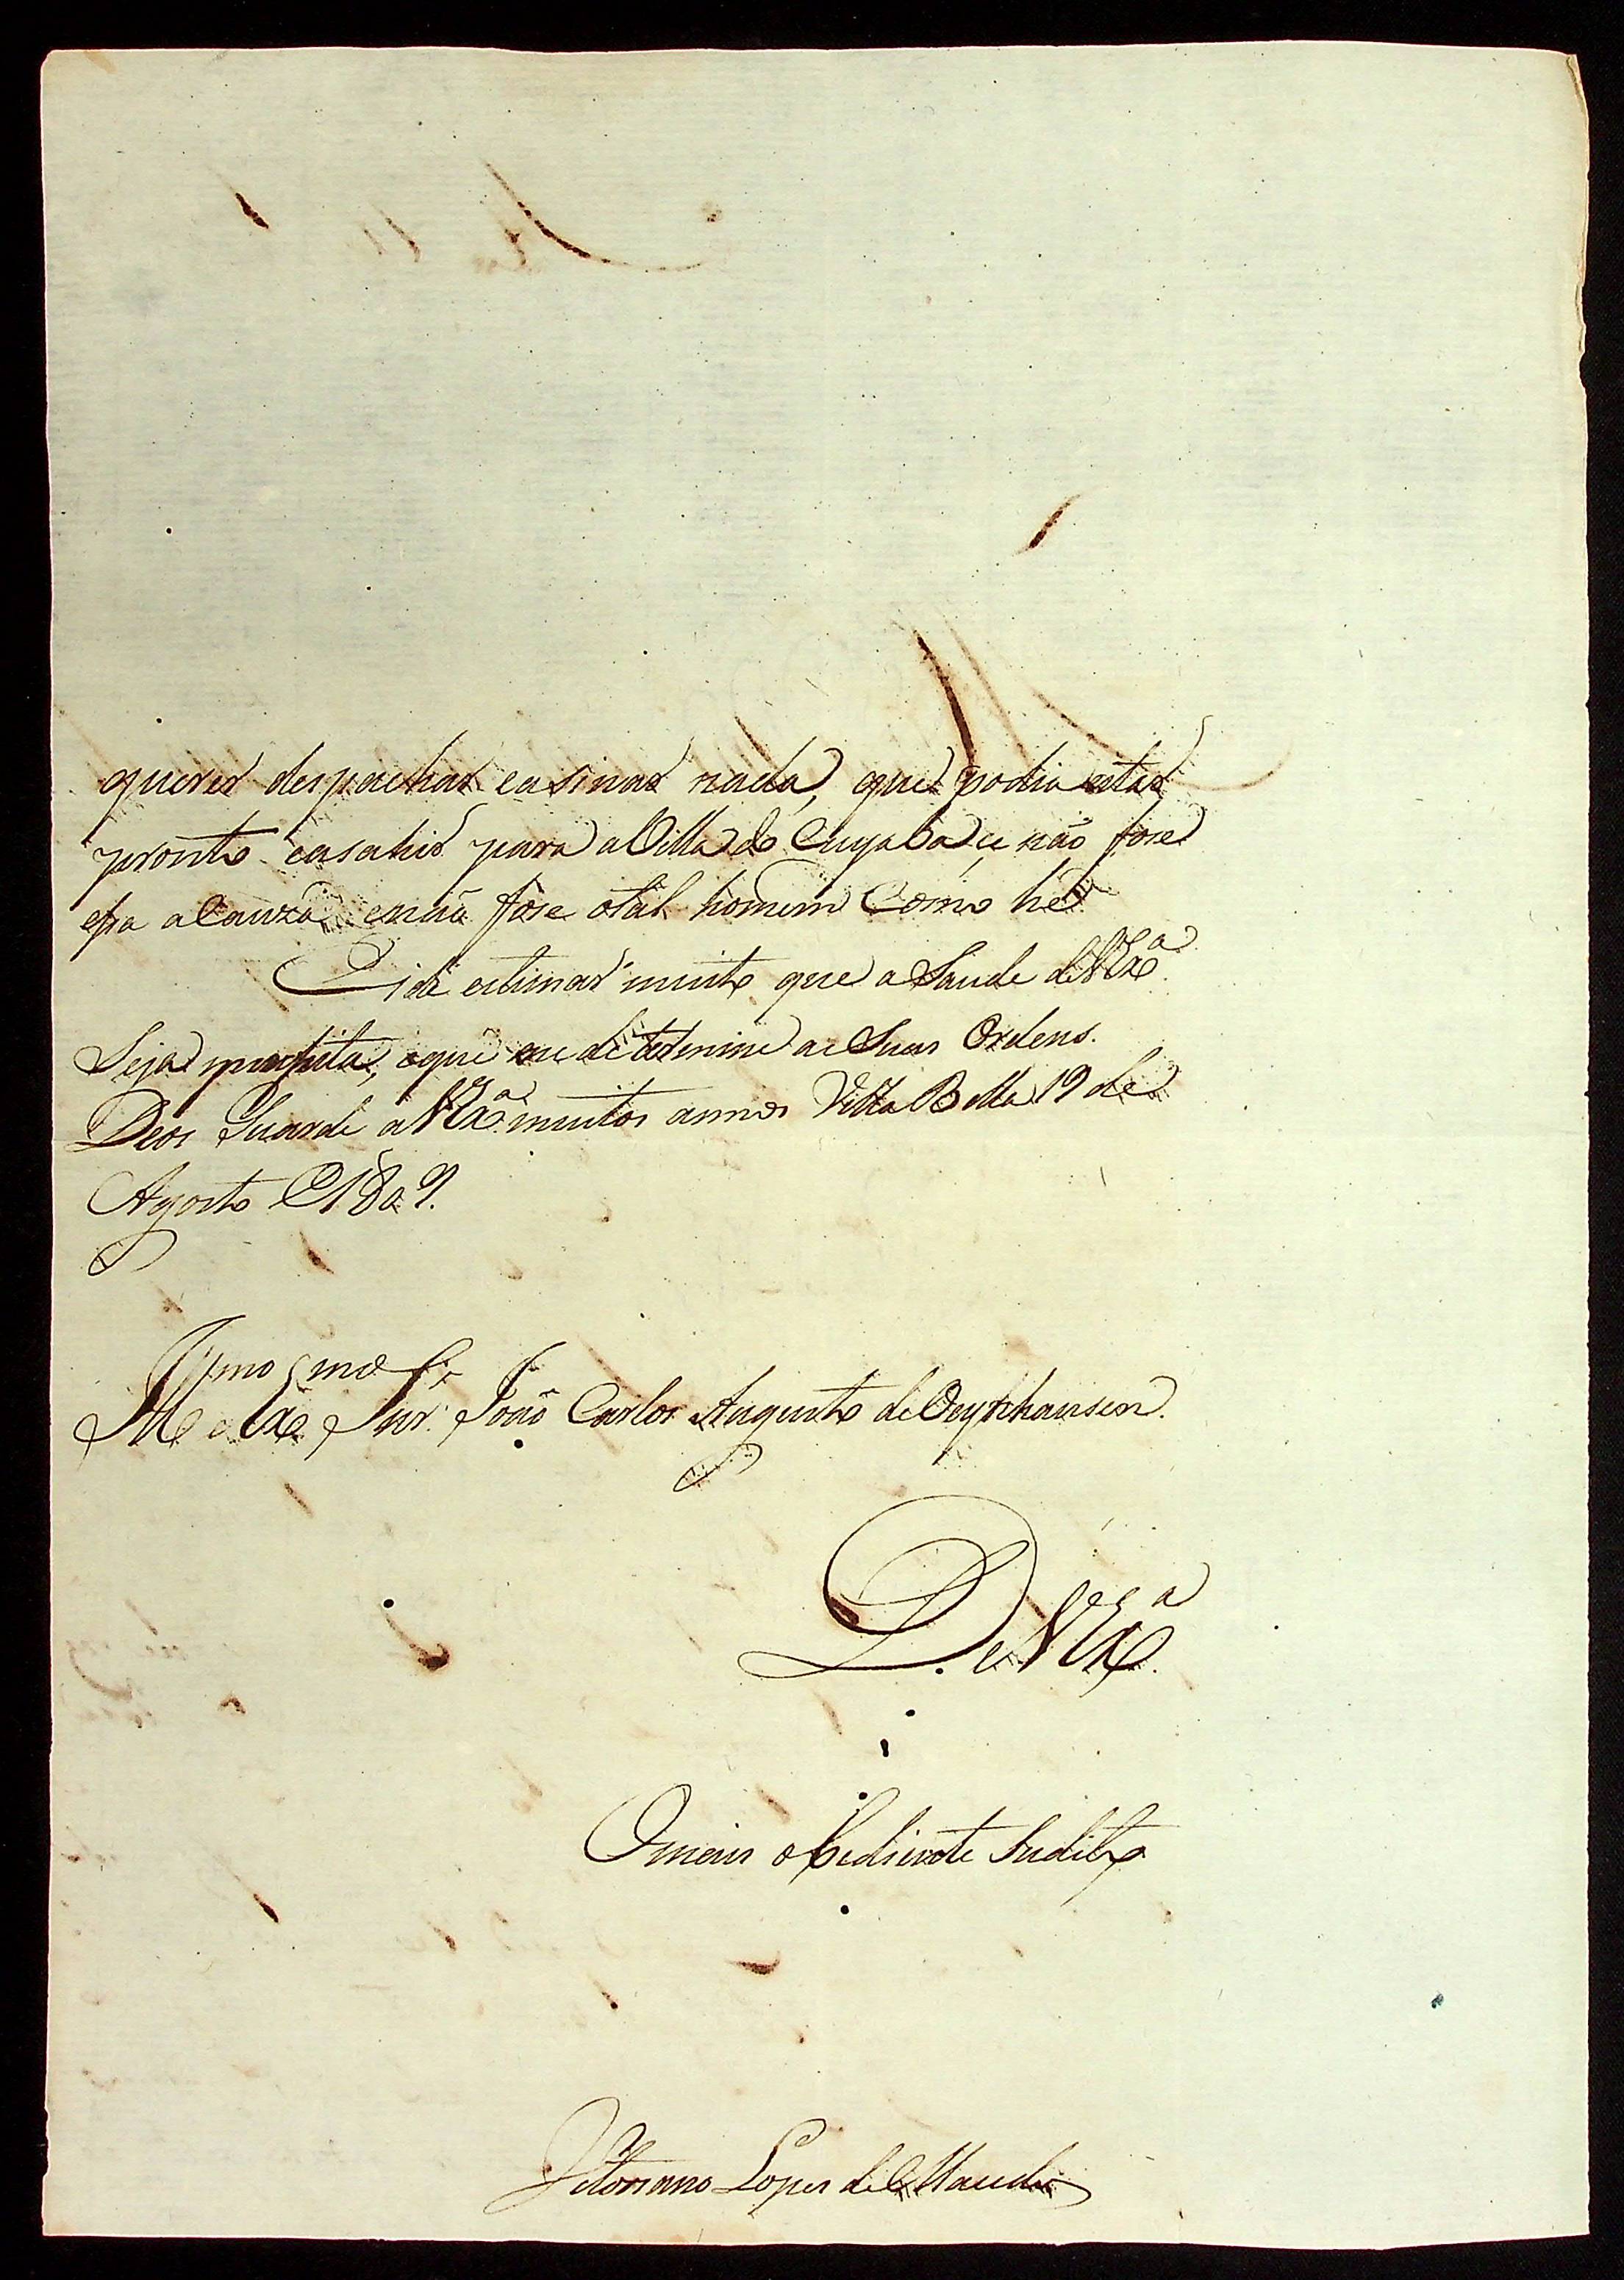 querer despachar easinar nada, que podia estar
pronto easahir para aVilla do Cuyaba se não fose
esa aCauza enão fose otal homem Como he
Eide estimar muito que a Saude deVExa.
Seja prefeita, eque me determine as Suas Ordens.
Deos Guarde aVExa. muitos annos Villa Bella 19 de
Agosto de 1809.
Illmo e Exmo Snr. João Carlos Augusto de Oeynhausen.
De VExa.
Omais obediente Sudito
Vitoriano Lopes de Macedo